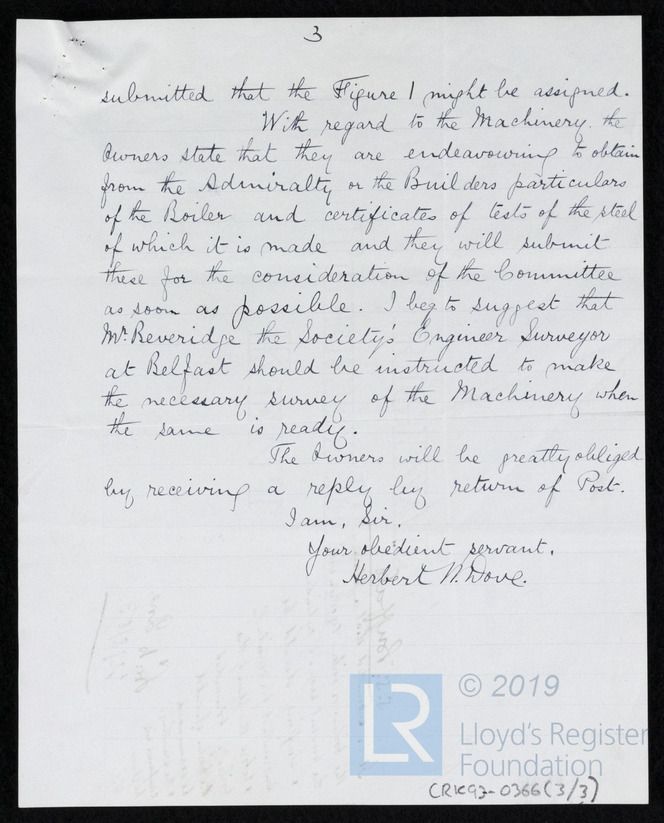 3
submitted that the Figure 1 might be assigned.
With regard to the Machinery, the
Owners state that they are endeavouring to obtain
from the Admiralty or the Builders particulars
of the Boiler and certificates of tests of the steel
of which it is made and they will submit
these for the consideration of the Committee
as soon as possible. I beg to suggest that
Mr. Beveridge the Society's Engineer Surveyor
at Belfast should be instructed to make
the necessary survey of the Machinery when
the same is ready.
The Owners will be greatly obliged
by receiving a reply by return of Post.
I am, Sir,
Your obedient servant,
Herbert N. Dove.
LR
© 2019
Lloyd's Register
Foundation
CRK93-0366(3/3)